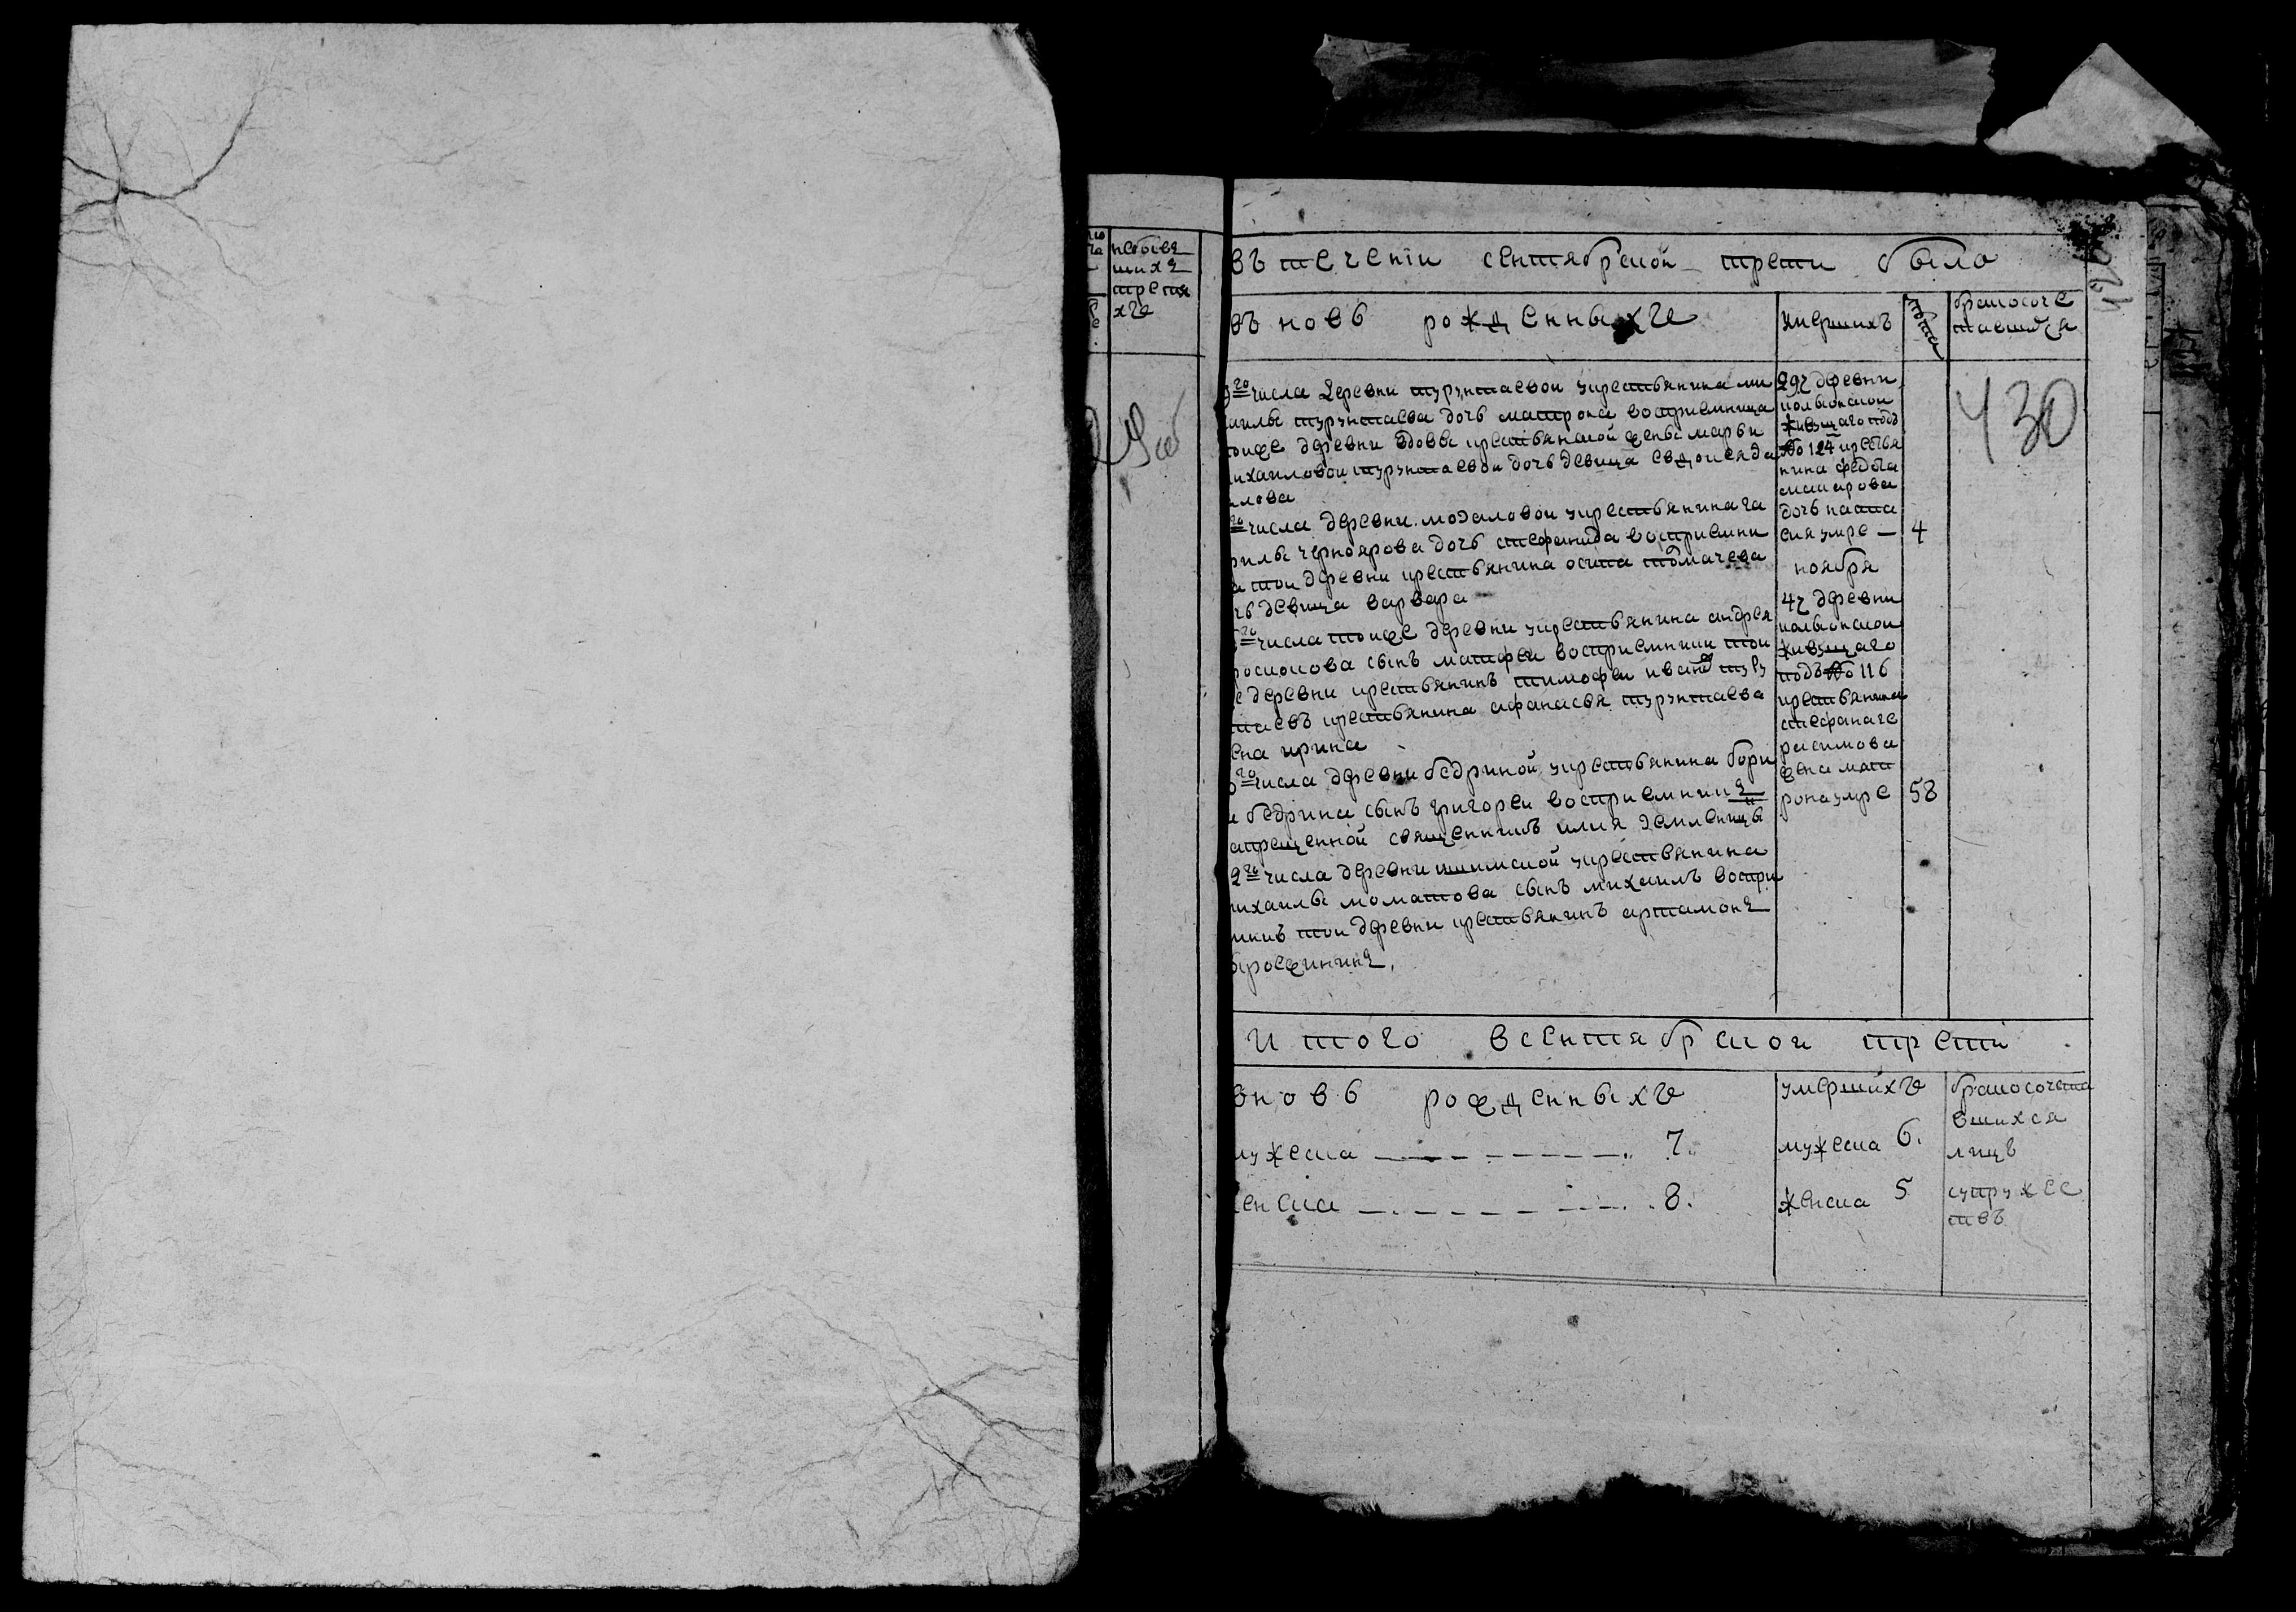 небыв
шихъ
треп
хъ
въ течении сентябрской трети было
въ новь рожденныхъ
умершихъ
лѣта
бракосоче
тавшихся
430
числа деревни турунтаевой у крестьянина ми
хаилы турунтаева дочь матрона восприемница
тоиже деревни вдовы крестьянской жены марьи
михаиловой турунтаевой дочь девица евдокея да
илова
числа деревни модаловой у крестьянина га
рилы черноярова дочь стефанида восприемни
а тои деревни крестьянина осипа толмачева
чь девица варвара
числа тоиже деревни у крестьянина андрея
сынъ матфеи восприемники тои
е деревни крестьянинъ тимофеи ивановъ туру
таевъ крестьянина афанасья турунтаева
ена ирина
числа деревни бедриной у крестьянина бори
а бедрина сынъ григореи восприемникъ
запрещенной священникъ илия земленицы
2го числа деревни шипской у крестьянина
михаилы моматова сынъ михаилъ воспри
мникъ тои деревни крестьянинъ артамонъ
29г деревни
колыонской
живущаго подъ
№ 124 крестья
нина федота
макарова
дочь наста
сия умре — 4
ноября
4г деревни
колыонской
живущаго
подъ № 116
крестьянина
стефана ге
расимова
жена мат
рона умре 58
и того всентябрской трети
вновь рожденныхъ
мужеска — 7.
женска — 8.
умершихъ
мужеска 6.
женска 5
бракосочета
вшихся
лицъ
супружес
твъ